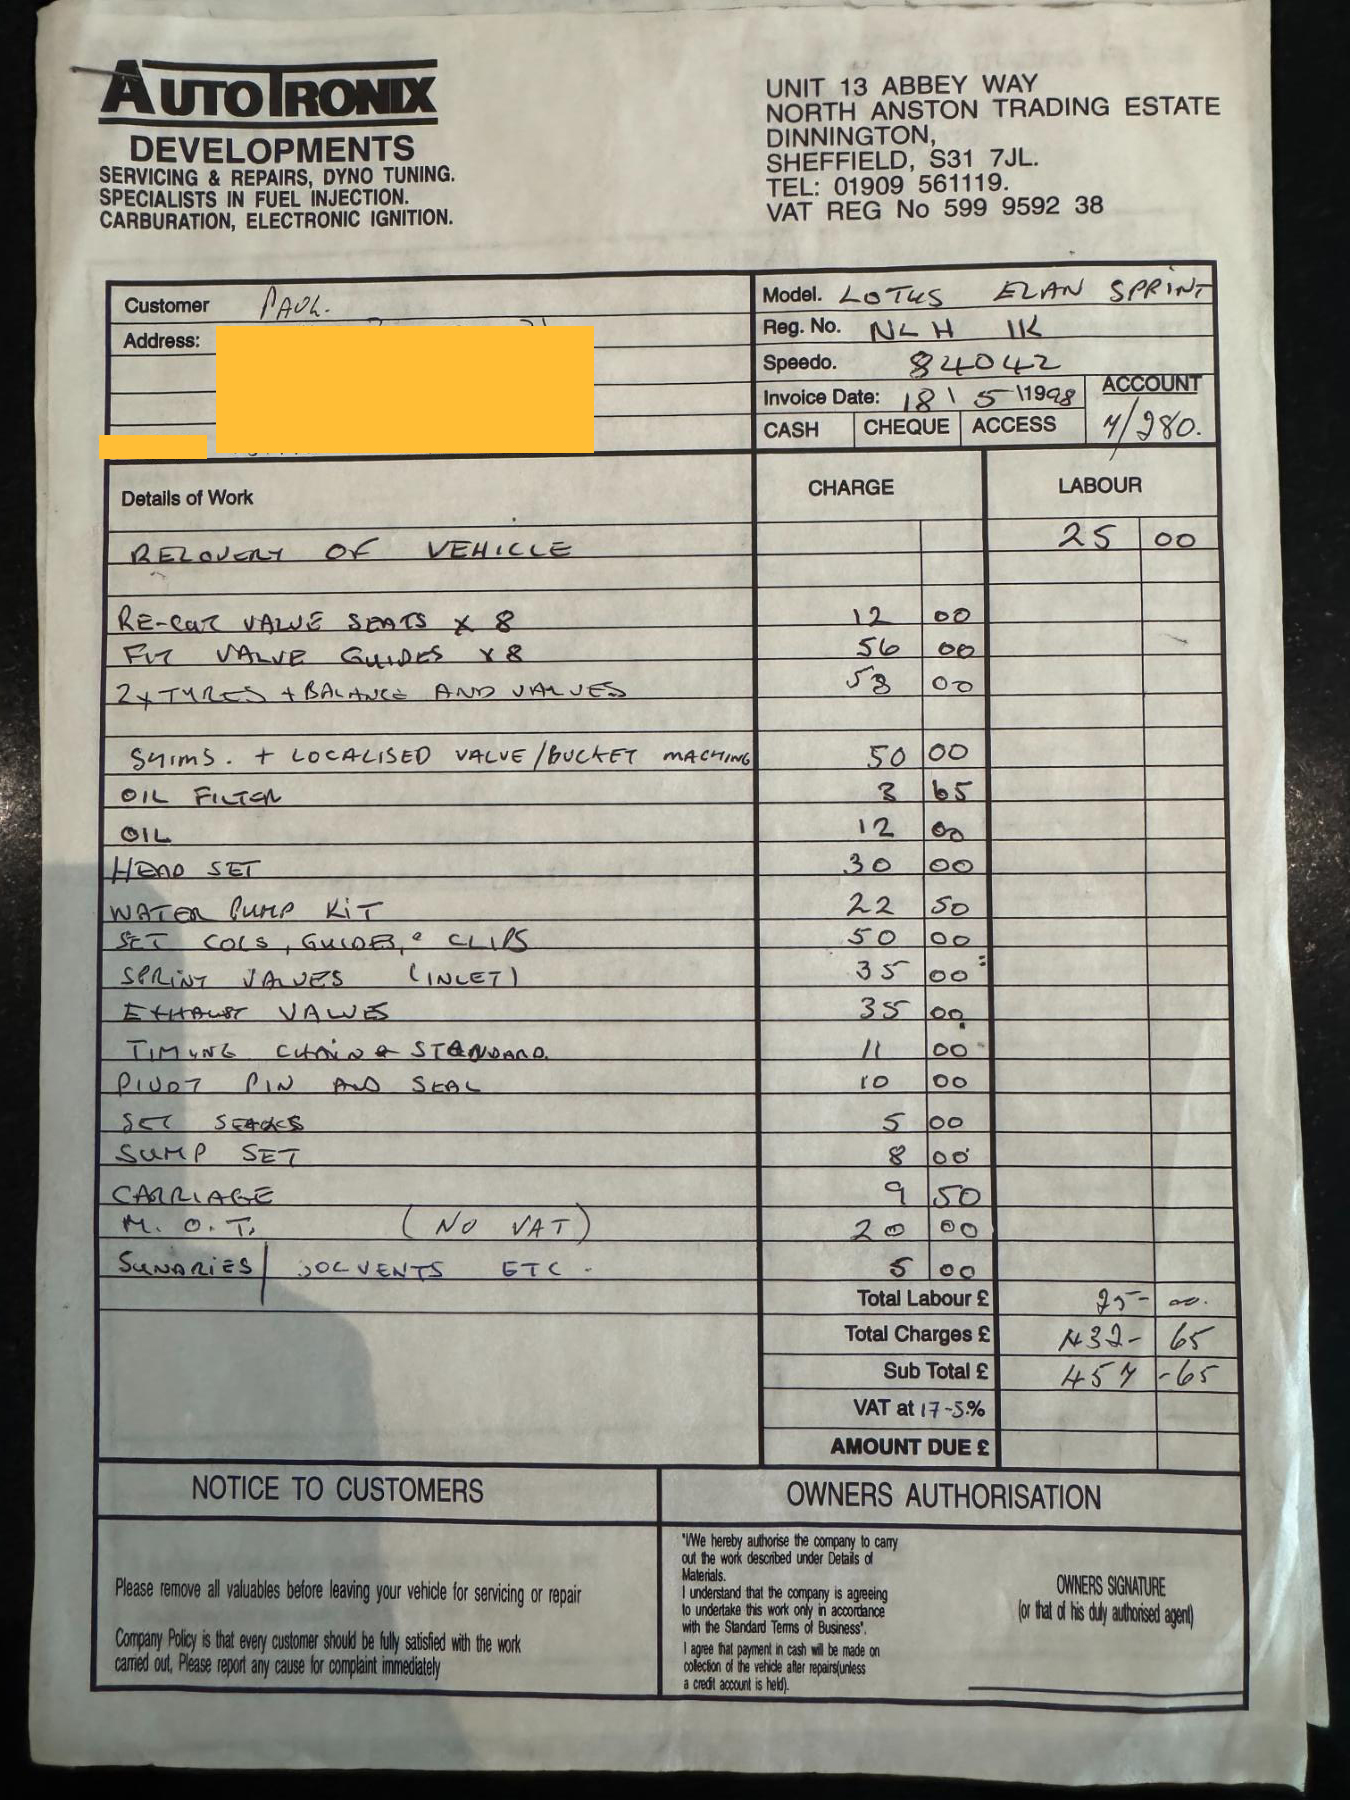 AUTOTRONIX
DEVELOPMENTS
SERVICING & REPAIRS, DYNO TUNING.
SPECIALISTS IN FUEL INJECTION.
CARBURATION, ELECTRONIC IGNITION.
UNIT 13 ABBEY WAY
NORTH ANSTON TRADING ESTATE
DINNINGTON,
SHEFFIELD, S31 7JL.
TEL: 01909 561119.
VAT REG No 599 9592 38
Customer PAUL.
Address:
Model. LOTUS ELAN SPRINT
Reg. No. NLH 1K
Speedo. 84042
Invoice Date: 18\5\1998
ACCOUNT
CASH CHEQUE ACCESS
Details of Work CHARGE LABOUR
RECOVERY OF VEHICLE 25 00
RE-CUT VALVE SEATS x 8 12 00
FIT VALVE GUIDES x8 56 00
2x TYRES + BALANCE AND VALVES 00
SHIMS. + LOCALISED VALVE/BUCKET MACHING 50 00
OIL FILTER 3 65
OIL 12 00
HEAD SET 30 00
WATER PUMP KIT 22 50
SET COLS, GUIDES, & CLIPS 50 00
SPRINT VALVES (INLET) 35 00
EXHAUST VALVES 35 00
TIMING CHAIN STANDARD. 11 00
PIVOT PIN AND SEAL 10 00
SET 5 00
SUMP SET 8 00
CARRIAGE 9 50
M.O.T. (NO VAT) 20 00
SUNARIES/ SOLVENTS ETC. 5 00
Total Labour £ 25- 00.
Total Charges £ 432- 65
Sub Total £ 457 -65
VAT at 17-5%
AMOUNT DUE £
NOTICE TO CUSTOMERS
Please remove all valuables before leaving your vehicle for servicing or repair
Company Policy is that every customer should be fully satisfied with the work
carried out, Please report any cause for complaint immediately
OWNERS AUTHORISATION
"I/We hereby authorise the company to carry
out the work described under Details of
Materials.
I understand that the company is agreeing
to undertake this work only in accordance
with the Standard Terms of Business".
I agree that payment in cash will be made on
collection of the vehicle after repairs(unless
a credit account is held).
OWNERS SIGNATURE
(or that of his duly authorised agent)